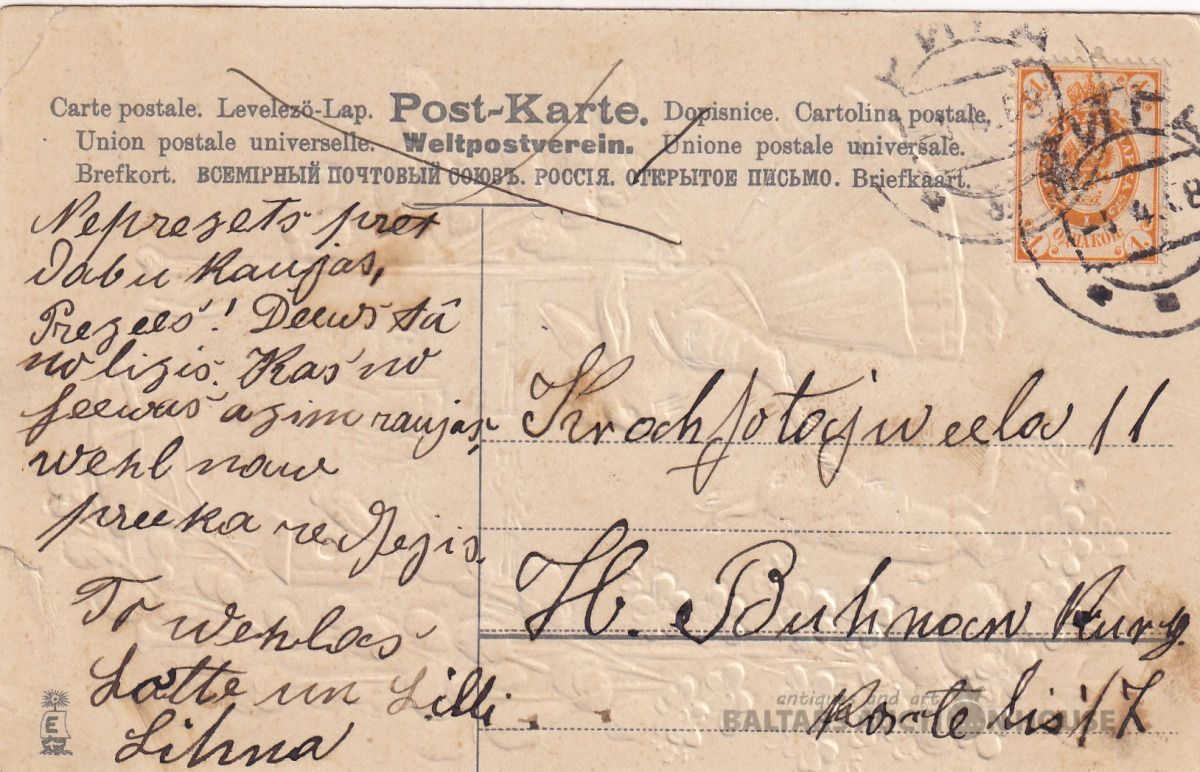 Carte postale. Levelezö-Lap. Post-Karte. Dopisnice. Cartolina postale.
Union postale universelle. Weltpostverein. Unione postale universale.
Brefkort. ВСЕМІРНЫЙ ПОЧТОВЫЙ СОЮЗЪ. РОССІЯ. ОТКРЫТОЕ ПИСЬМО. Briefkaart.
Neprezets pret
Dabu kaujas,
Prezees! Deews tā
no lizis. Kas no
seewas azim raujas,
wehl naw
preeka redsejis.
To wehlas
Latte un Lilli
Lihna
11
H. Buhman kung
E
antique and art
BALTA AUCTION HOUSE